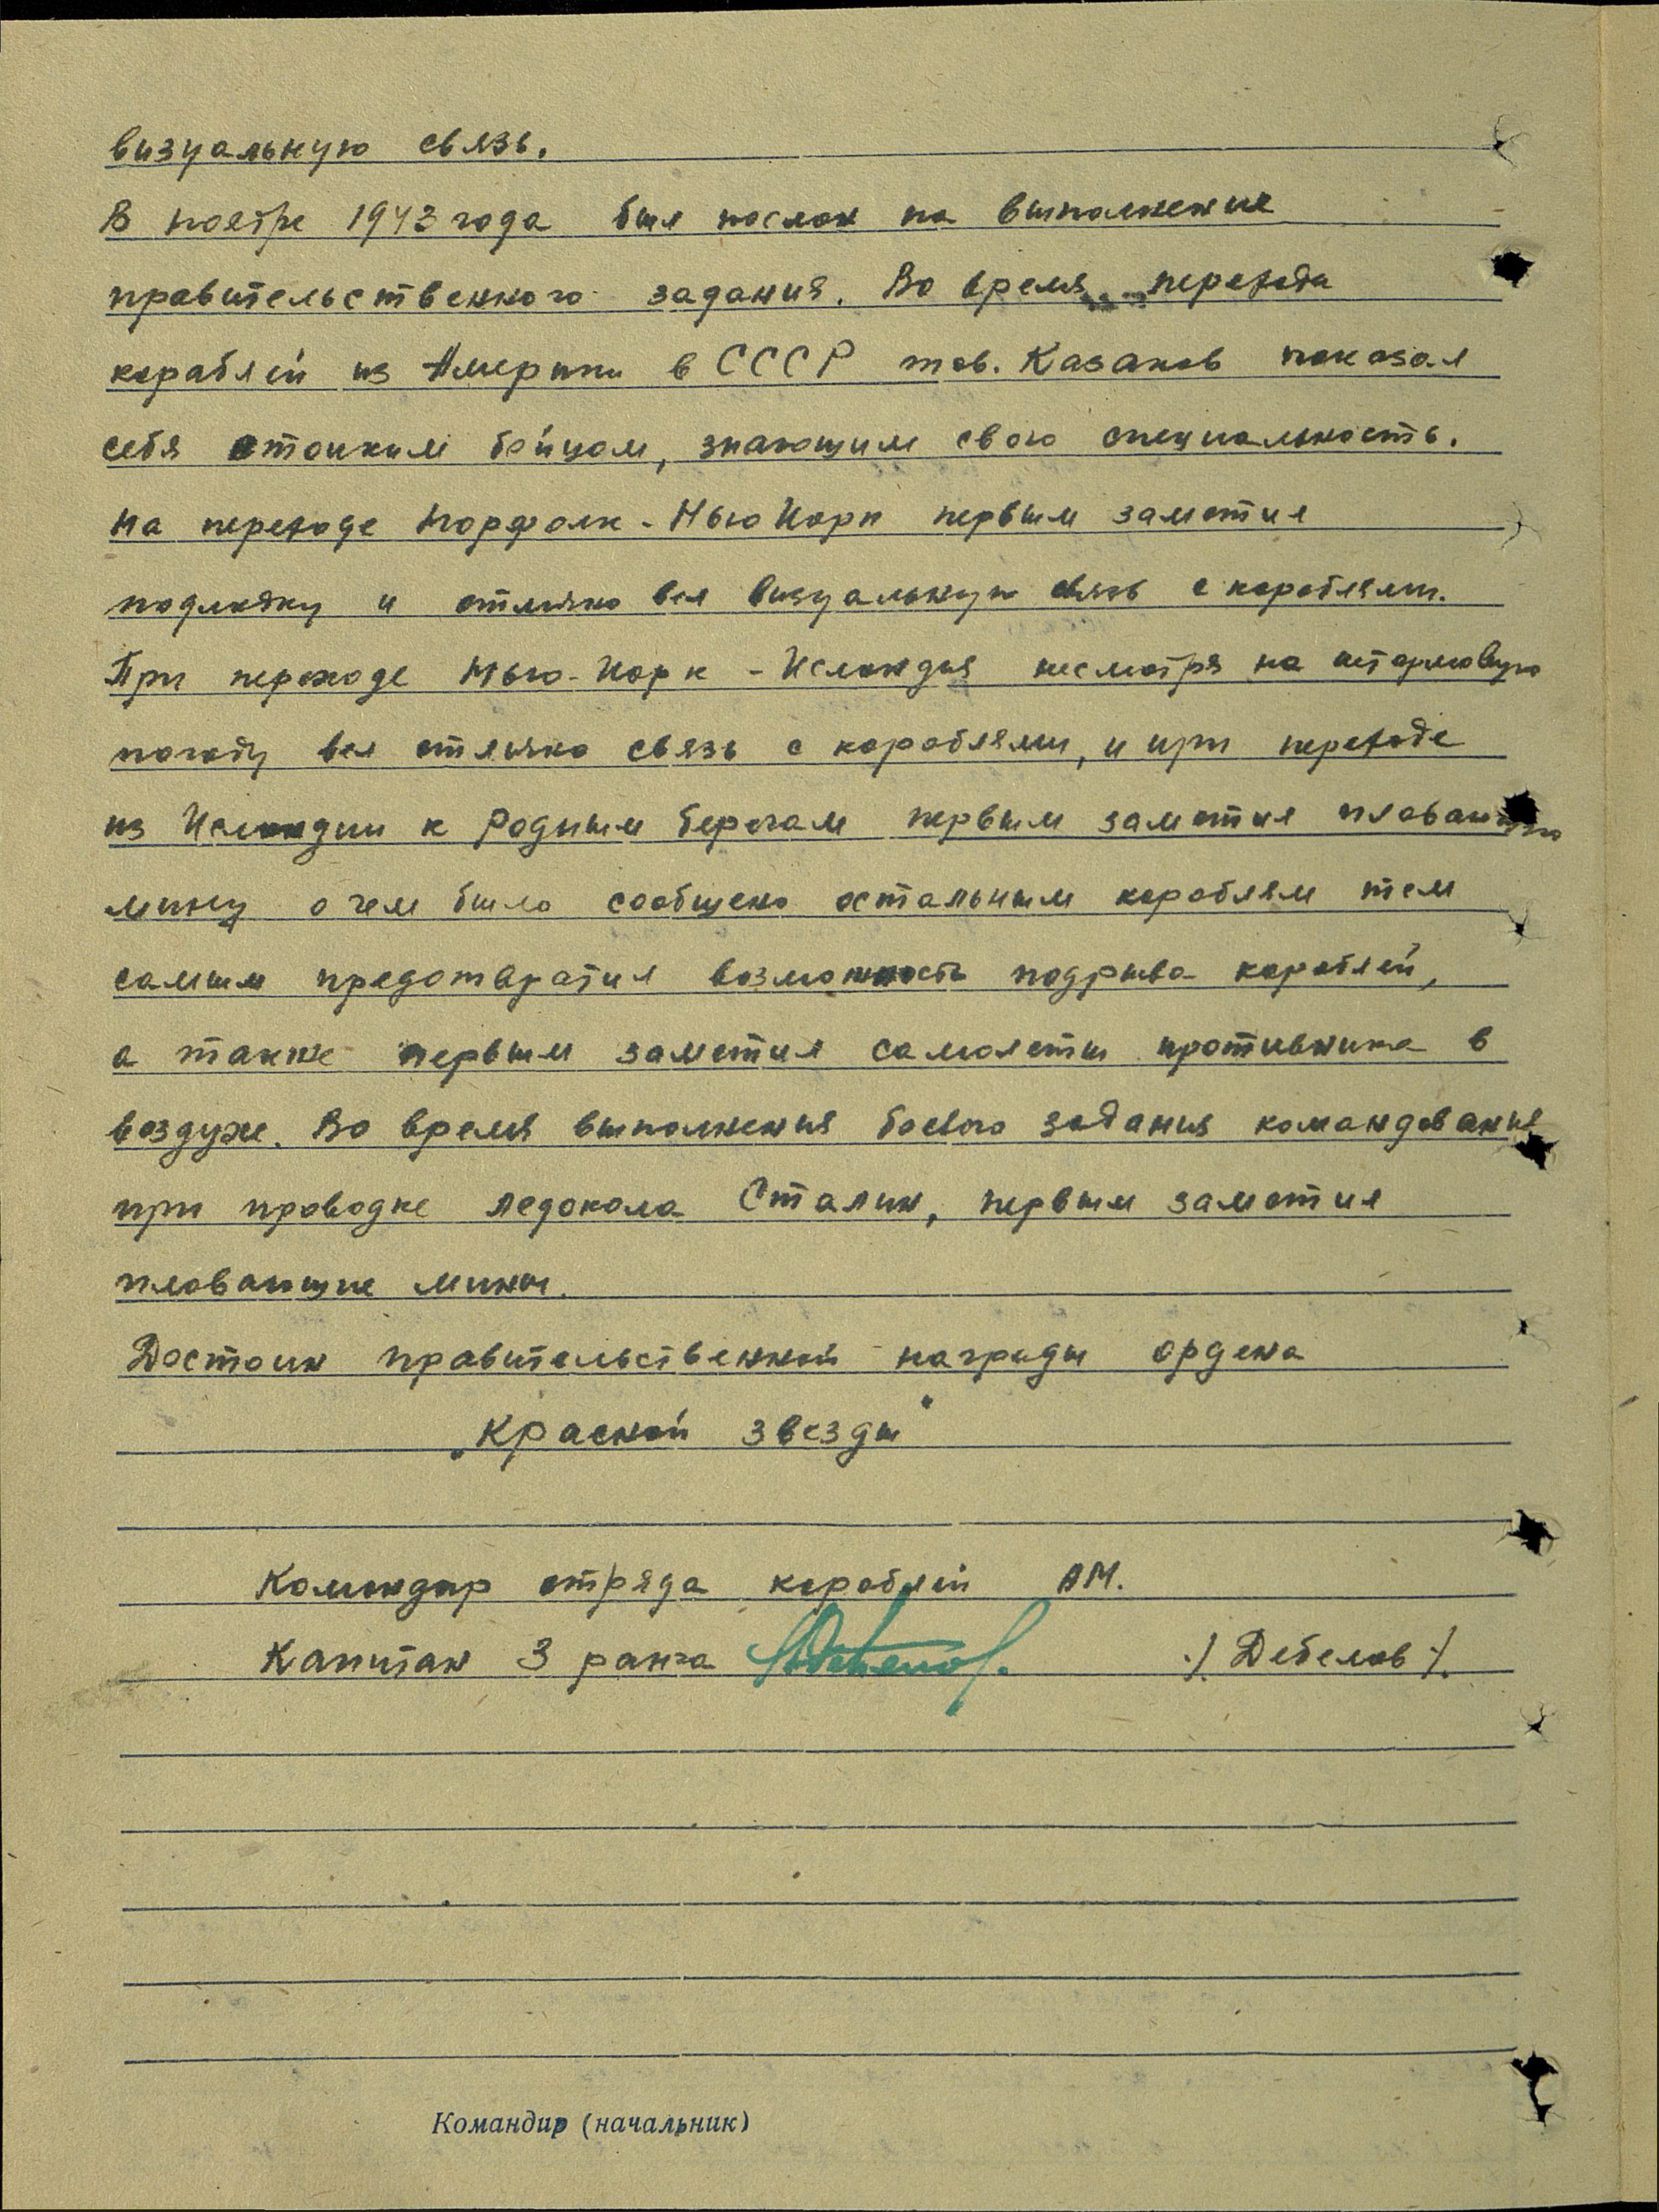 визуальную связь.
В ноябре 1943 года был послан на выполнение
правительственного задания. Во время перехода
кораблей из Америки в СССР тов. Казаков показал
себя стойким бойцом, знающим свою специальность.
На переходе Норфолк - Нью Иорк первым заметил
подлодку и отлично вел визуальную связь с кораблями.
При переходе Нью-Иорк - Исландия несмотря на штормовую
погоду вел отлично связь с кораблями, и при переходе
из Исландии к Родным берегам первым заметил плавающую
мину о чем было сообщено остальным кораблям тем
самым предотвратил возможность подрыва кораблей,
а также первым заметил самолеты противника в
воздухе. Во время выполнения боевого задания командования
при проводке ледокола Сталин, первым заметил
плавающие мины.
Достоин правительственной награды ордена
„Красной звезды"
Командир отряда кораблей АМ.
Капитан 3 ранга ./. Дебелов ./.
Командир (начальник)